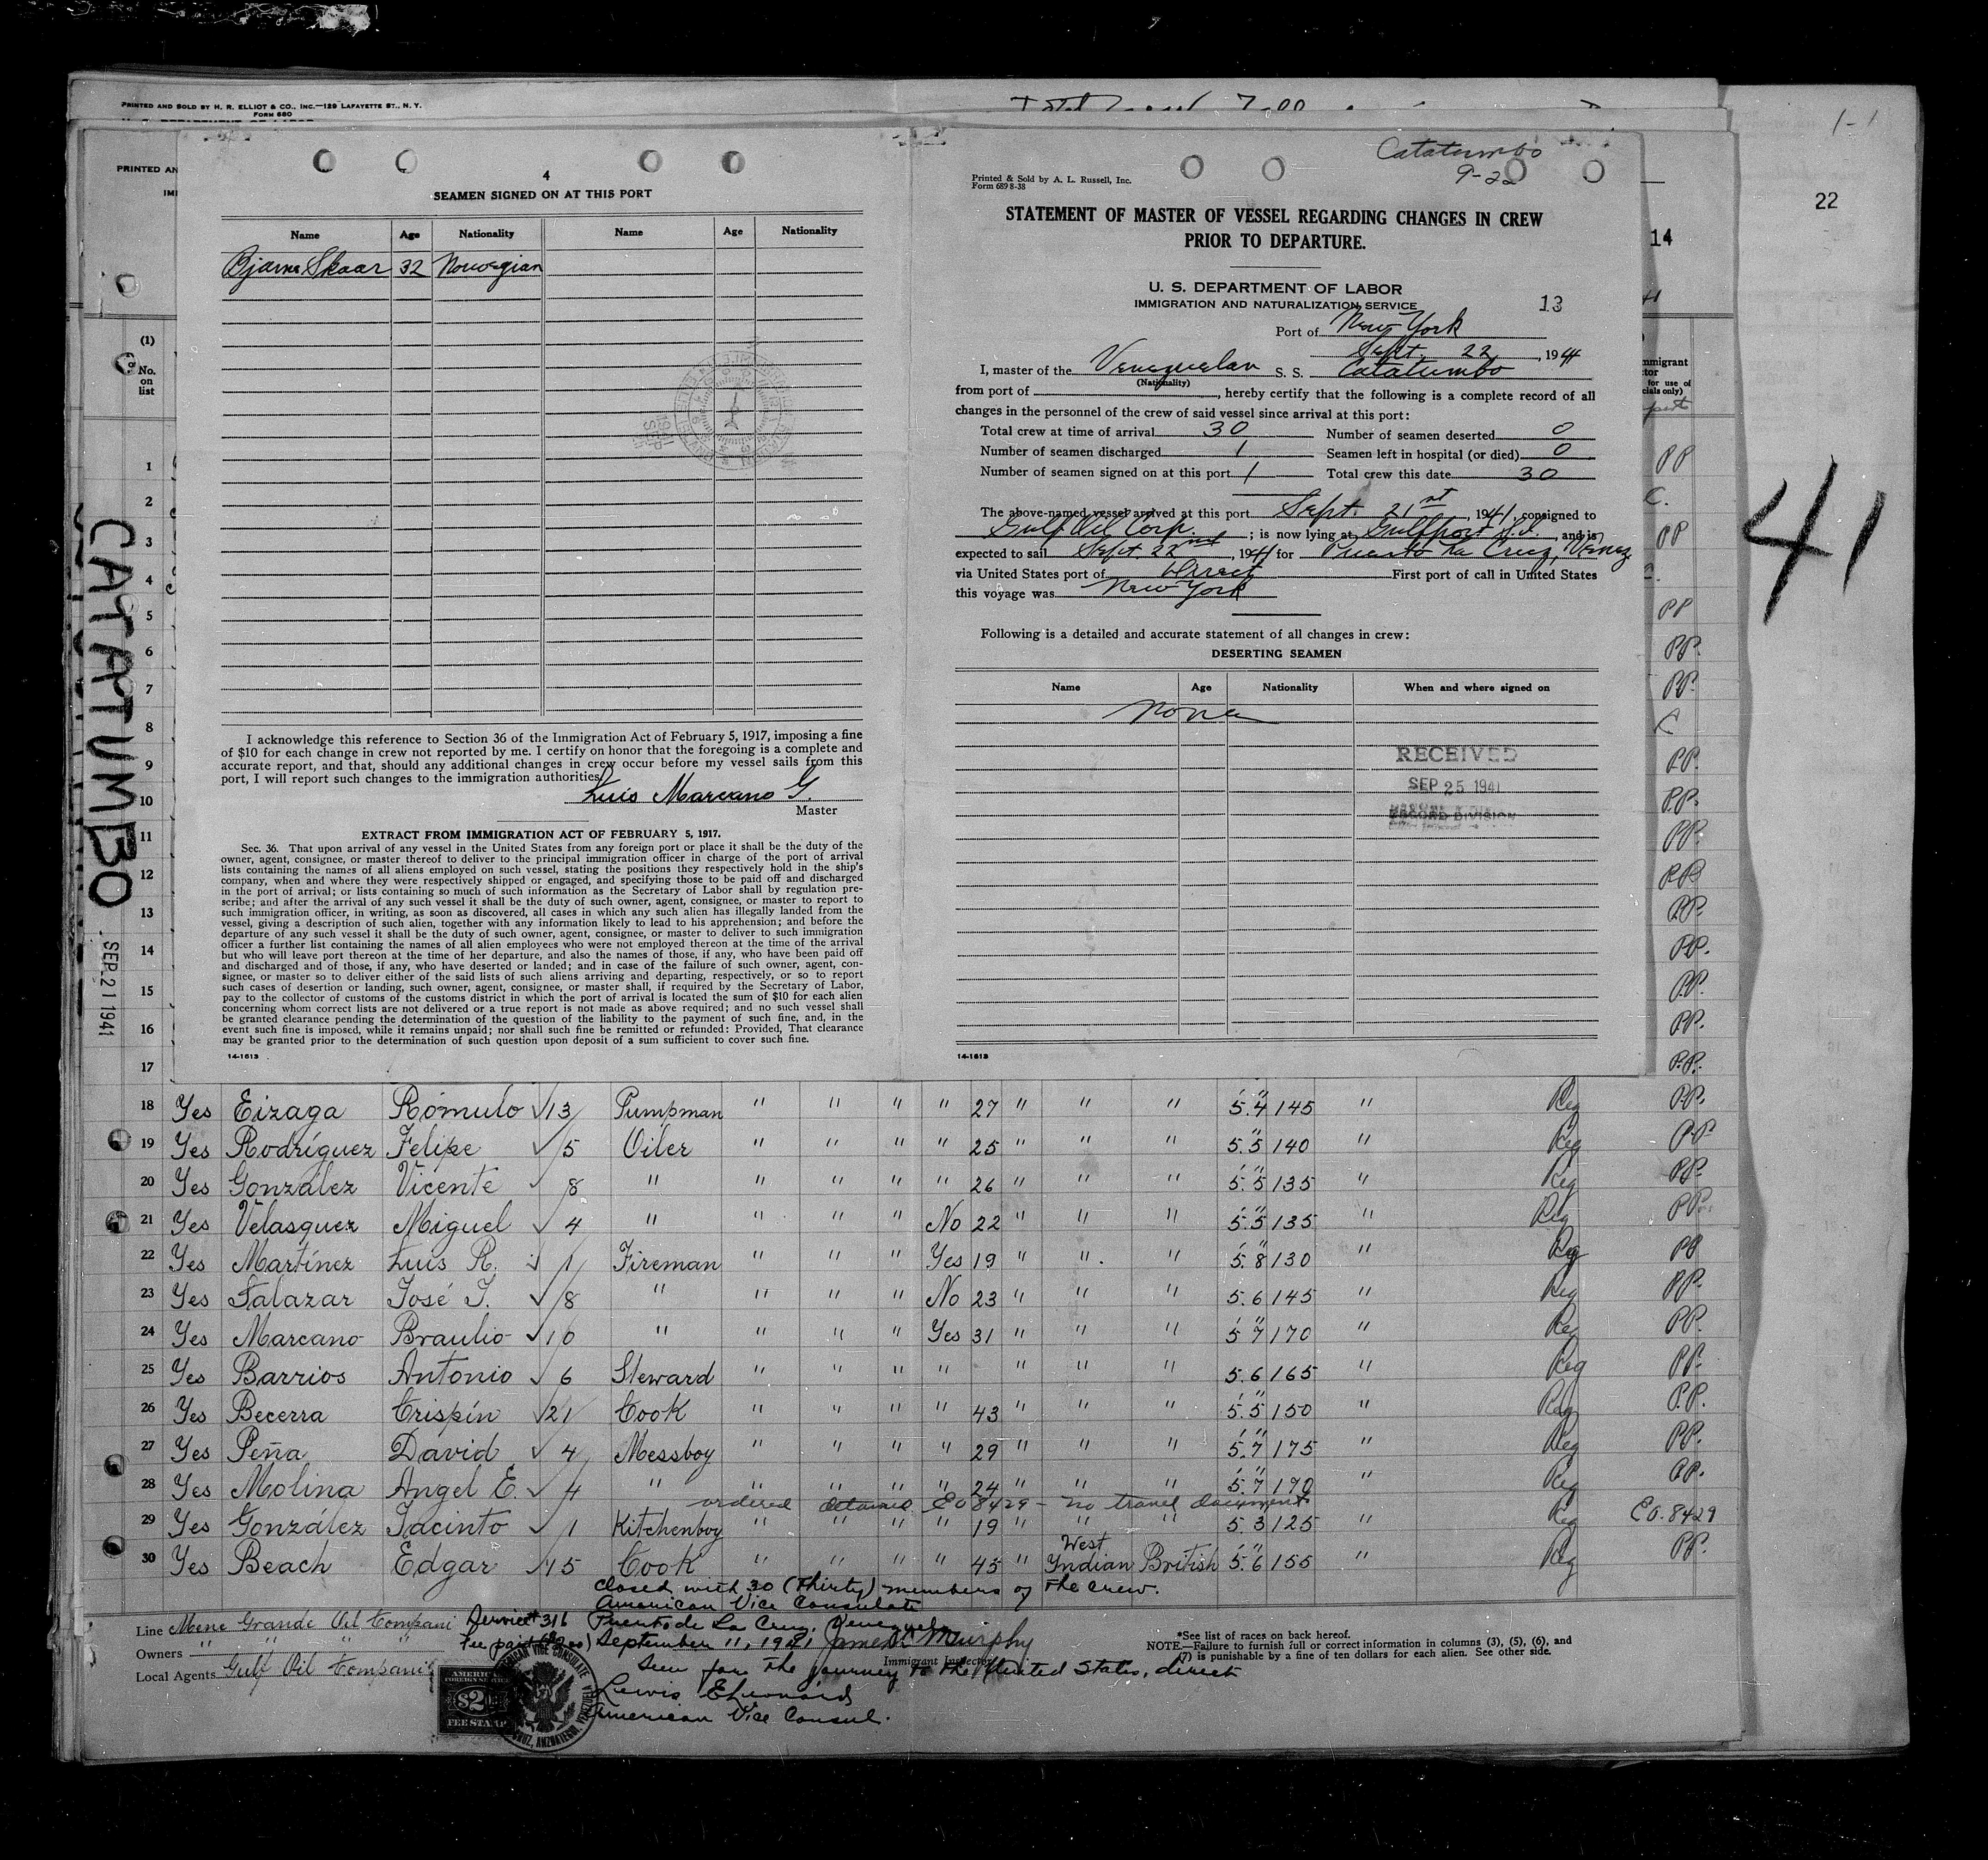 PRINTED AND SOLD BY H. R. ELLIOT & CO., INC.—129 LAFAYETTE ST., N. Y.
FORM 680
1-1
22
14
41
PRINTED AN
(1)
No.
on
list
CATATUMBO
SEP 21 1941
4
SEAMEN SIGNED ON AT THIS PORT
Name Age Nationality Name Age Nationality
Bjarne Skaar 32 Norwegian
I acknowledge this reference to Section 36 of the Immigration Act of February 5, 1917, imposing a fine
of $10 for each change in crew not reported by me. I certify on honor that the foregoing is a complete and
accurate report, and that, should any additional changes in crew occur before my vessel sails from this
port, I will report such changes to the immigration authorities.
Luis Marcano G.
Master
EXTRACT FROM IMMIGRATION ACT OF FEBRUARY 5, 1917.
Sec. 36. That upon arrival of any vessel in the United States from any foreign port or place it shall be the duty of the
owner, agent, consignee, or master thereof to deliver to the principal immigration officer in charge of the port of arrival
lists containing the names of all aliens employed on such vessel, stating the positions they respectively hold in the ship's
company, when and where they were respectively shipped or engaged, and specifying those to be paid off and discharged
in the port of arrival; or lists containing so much of such information as the Secretary of Labor shall by regulation pre-
scribe; and after the arrival of any such vessel it shall be the duty of such owner, agent, consignee, or master to report to
such immigration officer, in writing, as soon as discovered, all cases in which any such alien has illegally landed from the
vessel, giving a description of such alien, together with any information likely to lead to his apprehension; and before the
departure of any such vessel it shall be the duty of such owner, agent, consignee, or master to deliver to such immigration
officer a further list containing the names of all alien employees who were not employed thereon at the time of the arrival
but who will leave port thereon at the time of her departure, and also the names of those, if any, who have been paid off
and discharged and of those, if any, who have deserted or landed; and in case of the failure of such owner, agent, con-
signee, or master so to deliver either of the said lists of such aliens arriving and departing, respectively, or so to report
such cases of desertion or landing, such owner, agent, consignee, or master shall, if required by the Secretary of Labor,
pay to the collector of customs of the customs district in which the port of arrival is located the sum of $10 for each alien
concerning whom correct lists are not delivered or a true report is not made as above required; and no such vessel shall
be granted clearance pending the determination of the question of the liability to the payment of such fine, and, in the
event such fine is imposed, while it remains unpaid; nor shall such fine be remitted or refunded: Provided, That clearance
may be granted prior to the determination of such question upon deposit of a sum sufficient to cover such fine.
14-1613
Catatumbo
9-22
Printed & Sold by A. L. Russell, Inc.
Form 689 8-38
STATEMENT OF MASTER OF VESSEL REGARDING CHANGES IN CREW
PRIOR TO DEPARTURE.
U. S. DEPARTMENT OF LABOR
IMMIGRATION AND NATURALIZATION SERVICE
13
Port of New York
Sept. 22, 1941
I, master of the Venezuelan S. S. Catatumbo
(Nationality)
from port of , hereby certify that the following is a complete record of all
changes in the personnel of the crew of said vessel since arrival at this port:
Total crew at time of arrival 30 Number of seamen deserted 0
Number of seamen discharged 1 Seamen left in hospital (or died) 0
Number of seamen signed on at this port 1 Total crew this date 30
The above-named vessel arrived at this port Sept. 21st, 1941, consigned to
Gulf Oil Corp. ; is now lying at Gulfport S.I., and is
expected to sail Sept 22nd, 1941 for Puerto La Cruz, Venez
via United States port of Direct First port of call in United States
this voyage was New York
Following is a detailed and accurate statement of all changes in crew:
DESERTING SEAMEN
Name Age Nationality When and where signed on
None
RECEIVED
SEP 25 1941
RECORD DIVISION
14-1613
1 PP
2 C.
3 PP
4
5 PP
6 PP.
7 PP.
8 C
9 PP.
10 P.P.
11 PP.
12 PP
13 PP.
14 PP.
15 PP.
16 PP.
17 P.P.
18 Yes Eizaga Rómulo √ 13 Pumpman " " " " 27 " " " 5.4 145 " Reg PP.
19 Yes Rodríguez Felipe √ 5 Oiler " " " " 25 " " " 5.5 140 Reg PP
20 Yes González Vicente √ 8 " " " " " 26 " " " 5.5 135 " Reg PP.
21 Yes Velasquez Miguel √ 4 " " " " No 22 " " " 5.5 135 " Reg PP.
22 Yes Martínez Luis R. √ 1 Fireman " " " Yes 19 " " " 5.8 130 " Reg PP
23 Yes Salazar José J. √ 8 " " " " No 23 " " " 5.6 145 " Reg PP.
24 Yes Marcano Braulio √ 10 " " " " Yes 31 " " " 5 7 170 " Reg PP.
25 Yes Barrios Antonio √ 6 Steward " " " " " " " 5.6 165 " Reg PP.
26 Yes Becerra Crispín √ 21 Cook " " " " 43 " " " 5.5 150 " Reg P.P.
27 Yes Peña David √ 4 Messboy " " " " 29 " " " 5.7 175 " Reg PP.
28 Yes Molina Angel E. √ 4 " " " " " 24 " " " 5.7 170 " Reg PP.
ordered detained EO 8429 - no travel document
29 Yes González Jacinto √ 1 Kitchenboy " " " " 19 " " " 5.3 125 " Reg EO. 8429
30 Yes Beach Edgar √ 15 Cook " " " " 45 " West Indian British 5.6 155 " Reg PP.
Closed with 30 (Thirty) members of the crew.
American Vice Consulate
Line Mene Grande Oil Compani Service # 316 Puerto de La Cruz, Venezuela
Owners " " " " Fee paid September 11, 1941 James Murphy
Immigrant Inspector
Local Agents Gulf Oil Compani Seen for the journey to the United States, direct
Lewis E
American Vice Consul.
AMERICAN
FOREIGN SERVICE
$2
FEE STAMP
AMERICAN VICE CONSULATE
CRUZ, ANZOATEGUI, VENEZUELA
*See list of races on back hereof.
NOTE.—Failure to furnish full or correct information in columns (3), (5), (6), and
(7) is punishable by a fine of ten dollars for each alien. See other side.